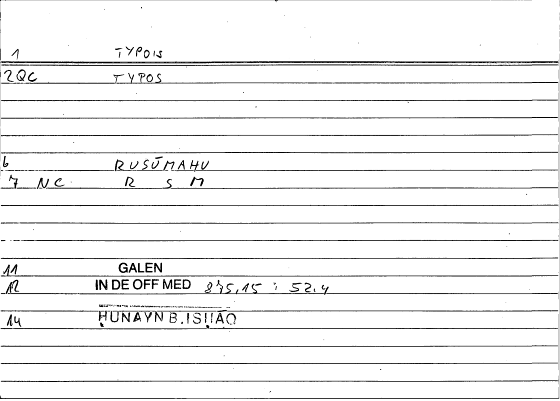 1 TYPOIS
2QC TYPOS
6 RUSŪMAHU
7 NC R S M
11 GALEN
12 IN DE OFF MED 875,15 : 52.4
14 ḤUNAYN B.ISḤĀQ